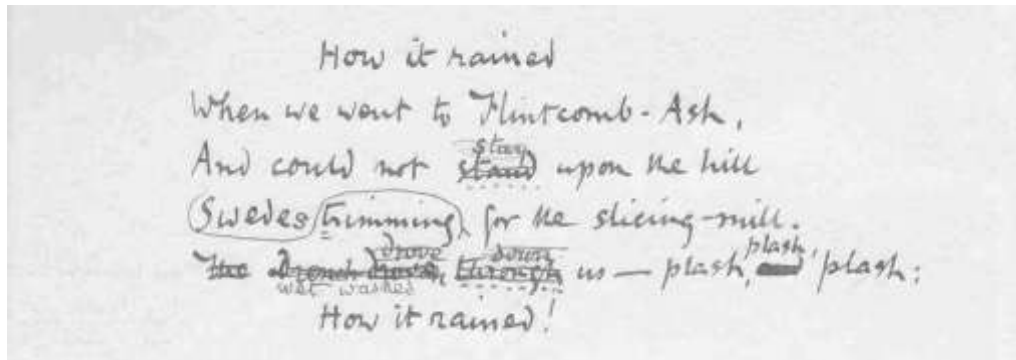 How it rained
When we went to Flintcomb-Ash,
stay
And could not stand upon the hill
Swedes trimming, for the slicing-mill.
drove down plash,
The Drench through us — plash, plash:
wet washed
How it rained!